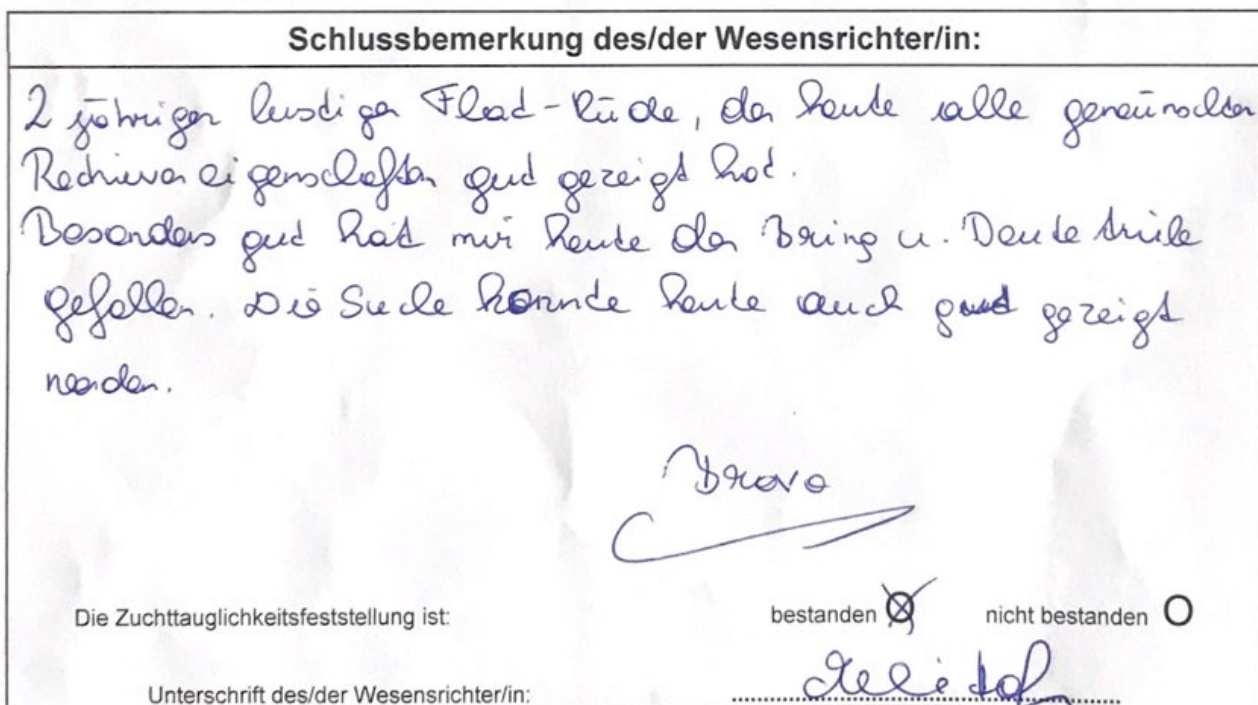 Schlussbemerkung des/der Wesensrichter/in:
2 jähriger lustiger Flat-Rüde, der heute alle gewünschten
Retrievereigenschaften gut gezeigt hat.
Besonders gut hat mir heute der Bring u. Beutetriebe
gefallen. Die Suche konnte heute auch gut gezeigt
werden.
Bravo
Die Zuchttauglichkeitsfeststellung ist: bestanden nicht bestanden
Unterschrift des/der Wesensrichter/in: